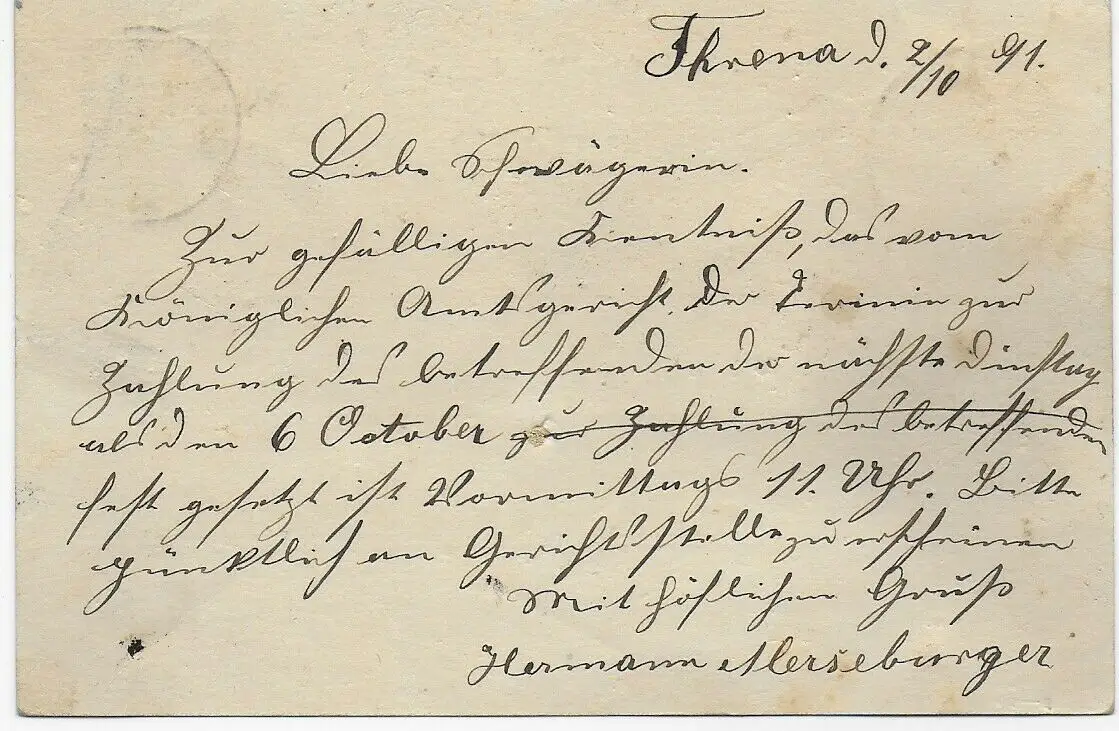 Threna d. 2/10 91.
Liebe Schwägerin.
Zur gefälligen Kentniß, das vom
Königlichen Amtsgericht. der Termin zur
Zahlung des betreffenden der nächste Dinstag
als den 6 October zur Zahlung des betreffenden
fest gesetzt ist Vormittags 11. Uhr. Bitte
pünktlich an Gerichtsstelle zu erscheinen
Mit höflichen Gruß
Hermann Merseburger